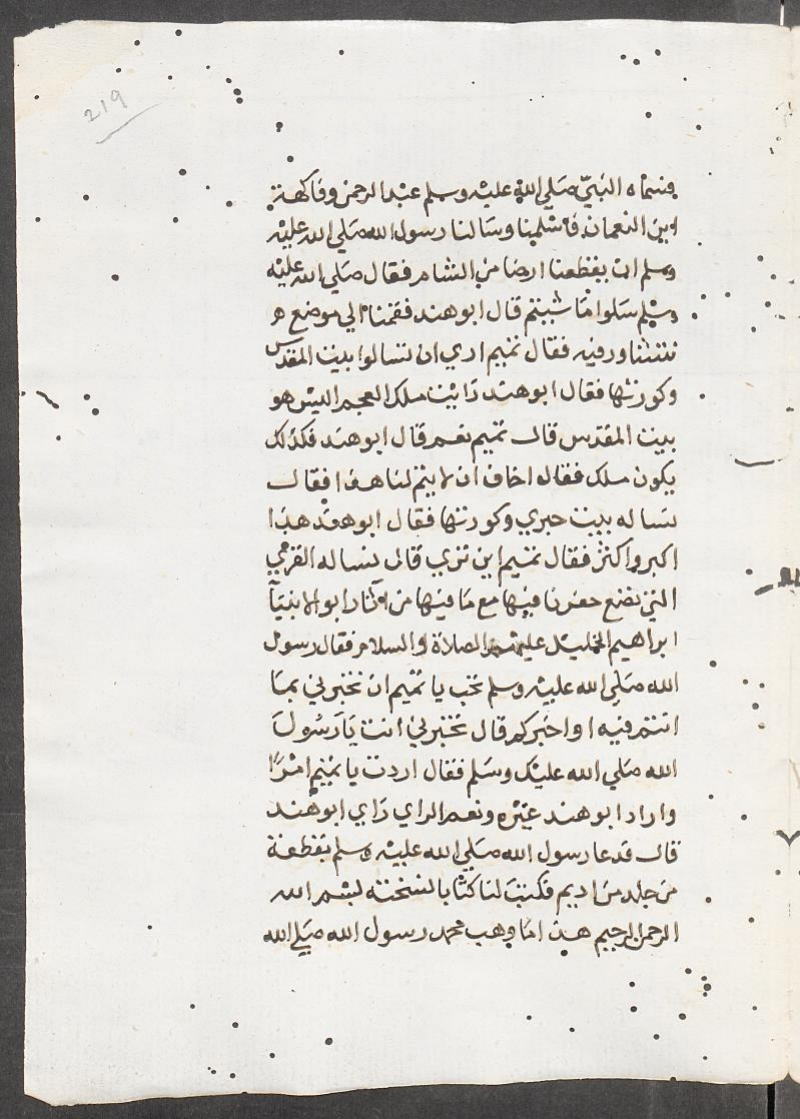 219
فسماه النبي صلي الله عليه وسلم عبد الرحمن وفاكهة
ابن النعمان فاسلمنا وسالنا رسول الله صلي الله عليه
وسلم ان يقطعنا ارضا من الشام فقال صلي الله عليه
وسلم سلوا ما شيتم قال ابو هند فقمنا الي موضع
نتشاور فيه فقال تميم اري ان نسالوا بيت المقدس
وكورتها فقال ابو هند رايت ملك العجم اليس هو
ببيت المقدس قال تميم نعم قال ابو هند فكذلك
يكون ملك فقال اخاف ان لا يتم لنا هذا فقال
نساله بيت حبري وكورتها فقال ابو هند هذا
اكبر واكثر فقال تميم اين تري قال نساله القري
التي نضع حصرنا فيها مع ما فيها من اثار ابو الانبيآ
ابراهيم الخليل عليهم الصلاة والسلام فقال رسول
الله صلي الله عليه وسلم تحب يا تميم ان تخبرني بما
انتم فيه او اخبركم قال تخبرني انت يا رسول
الله صلي الله عليك وسلم فقال اردت يا تميم امرًا
واراد ابو هند غيره ونعم الراي راي ابو هند
قال فدعا رسول الله صلي الله عليه وسلم بقطعة
من جلد من اديم فكتب لنا كتابا نسخته بسم الله
الرحمن الرحيم هذا ما وهب محمد رسول الله صلي الله